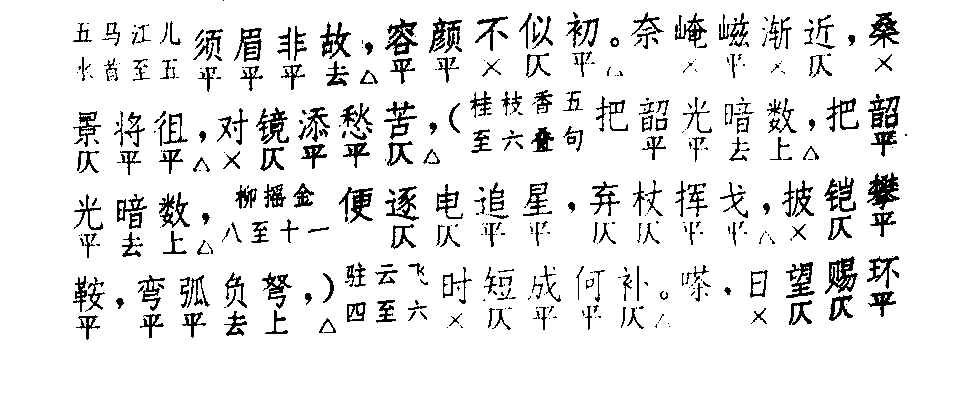 五马江儿 须眉非故，容颜不似初。奈崦嵫渐近，桑
水首至五 平平平去△平平×仄平△×平×仄×
景将徂，对镜添愁苦，（桂枝香五 把韶光暗数，把韶
仄平平△×仄平平仄△ 至六叠句 平平去上△平
光暗数，柳摇金 便逐电追星，弃杖挥戈，披铠攀
平去上△八至十一 仄仄平平 仄仄平平△×仄平
鞍，弯弧负弩，）驻云飞 时短成何补。嗏，日望赐环
平 平平去上△四至六 ×仄平平仄△ ×仄仄平